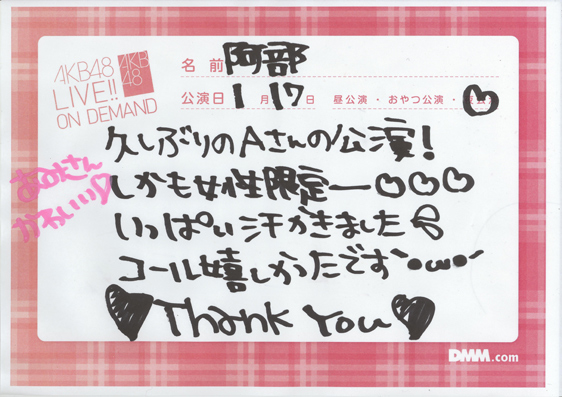 AKB48
LIVE!!
ON DEMAND
AKB
48
名前 阿部
公演日 1月17日 昼公演・おやつ公演・
久しぶりのAさんの公演！
しかも女性限定ー♡♡♡
いっぱい汗かきました
コール嬉しかったです`•ω•´
♥Thank You♥
さん
かわいい♡
DMM.com